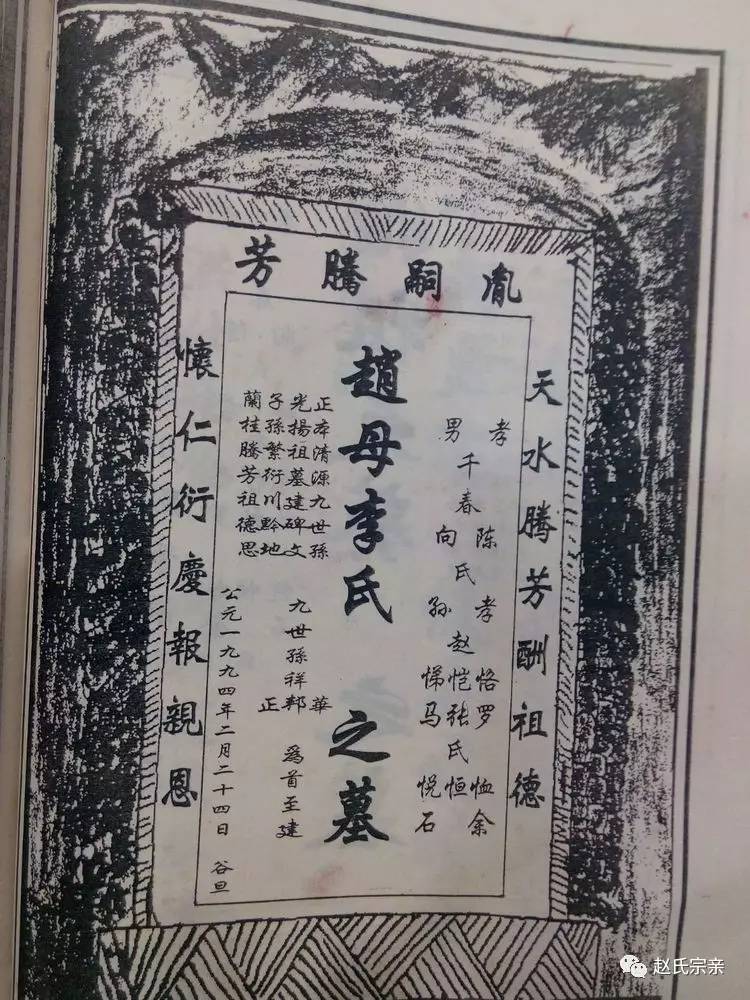 胤嗣騰芳
天水腾芳酬祖德
孝
男
千春
陈
向氏
孝
孙
赵
恪罗恤余
恺张氏恒
悌马悦石
趙母李氏之墓
正本清源九世孫
光揚祖墓建碑文
子孫繁衍川黔地
蘭桂騰芳祖德思
華
九世孫祥邦
正
為首至建
公元一九九四年二月二十四日 谷旦
懷仁衍慶報親恩
赵氏宗亲